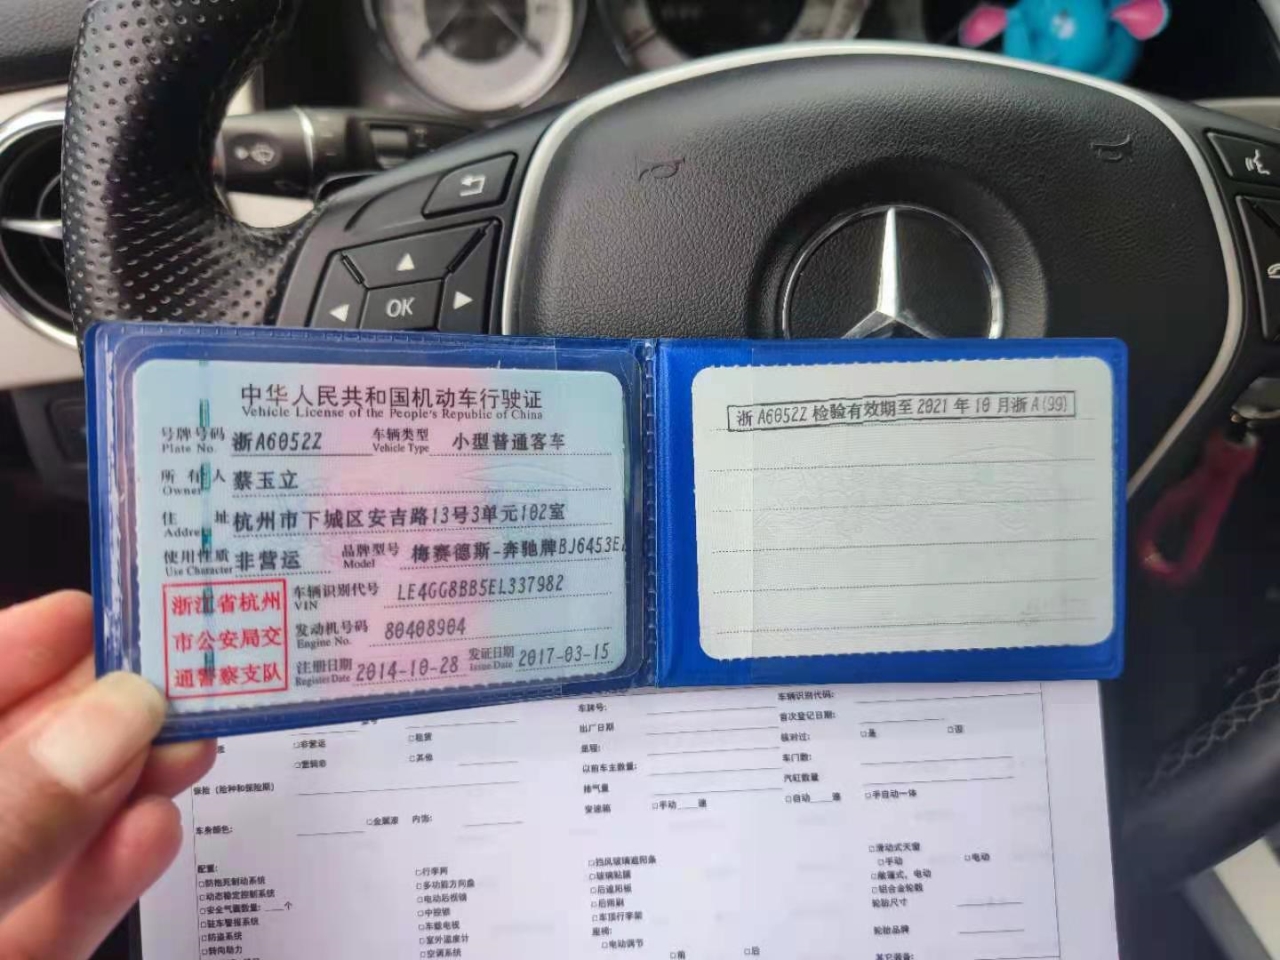 OK
中华人民共和国机动车行驶证
Vehicle License of the People's Republic of China
号牌号码 浙A6052Z 车辆类型 小型普通客车
Plate No. Vehicle Type
所有人 蔡玉立
Owner
住址 杭州市下城区安吉路13号3单元102室
Address
使用性质 非营运 品牌型号 梅赛德斯-奔驰牌BJ6453E
Use Character Model
浙江省杭州
市公安局交
通警察支队
车辆识别代号 LE4GG8BB5EL337982
VIN
发动机号码 80408904
Engine No.
注册日期 2014-10-28 发证日期 2017-03-15
Register Date Issue Date
浙A6052Z 检验有效期至2021年10月浙A(99)
车牌号: 车辆识别代码:
出厂日期 首次登记日期:
□非营运 □租赁 里程: 核对过: □是 □否
□营转非 □其他 以前车主数量: 车门数:
保险 (险种和保险期) 排气量 汽缸数量
变速箱 □手动__速 □自动__速 □手自动一体
车身颜色: □金属漆 内饰:
配置: □行李网 □挡风玻璃遮阳条 □滑动式天窗
□防抱死制动系统 □多功能方向盘 □玻璃贴膜 □手动 □电动
□动态稳定控制系统 □电动后视镜 □后遮阳板 □敞篷式、电动
□安全气囊数量: 个 □中控锁 □后雨刷 □铝合金轮毂
□驻车警报系统 □车载电视 □车顶行李架 轮胎尺寸
□防盗系统 □室外温度计 座椅: 轮胎品牌
□转向助力 □空调系统 □电动调节 □前 □后 其它装备: